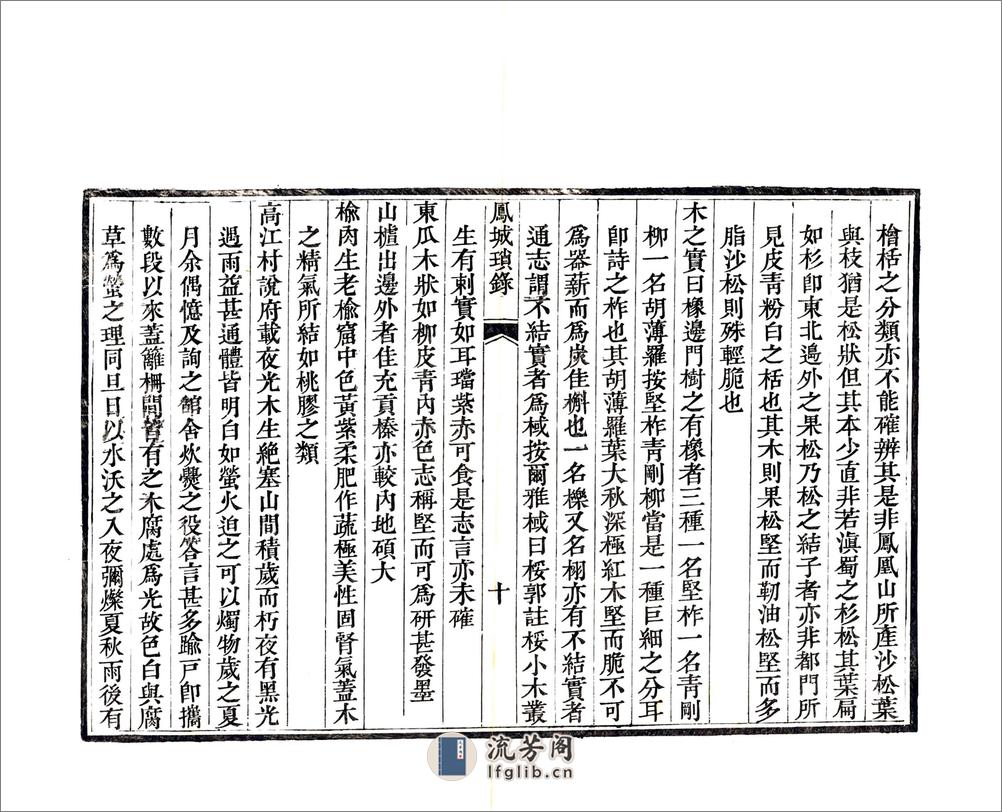 檜栝之分類亦不能確辨其是非鳳凰山所產沙松葉
與枝猶是松狀但其本少直非若滇蜀之杉松其葉扁
如杉卽東北邊外之果松乃松之結子者亦非都門所
見皮靑粉白之栝也其木則果松堅而韌油松堅而多
脂沙松則殊輕脆也
木之實曰橡邊門樹之有橡者三種一名堅柞一名靑剛
柳一名胡薄羅按堅柞靑剛柳當是一種巨細之分耳
卽詩之柞也其胡薄羅葉大秋深極紅木堅而脆不可
爲器薪而爲炭佳槲也一名櫟又名栩亦有不結實者
通志謂不結實者爲棫按爾雅棫曰桵郭註桵小木叢
鳳城瑣錄
十
生有刺實如耳璫紫赤可食是志言亦未確
東瓜木狀如柳皮靑內赤色志稱堅而可爲研甚發墨
山樝出邊外者佳充貢榛亦較內地碩大
楡肉生老楡窟中色黃紫柔肥作蔬極美性固腎氣蓋木
之精氣所結如桃膠之類
高江村說府載夜光木生絕塞山間積歲而朽夜有黑光
遇雨益甚通體皆明白如螢火迫之可以燭物歲之夏
月余偶憶及詢之館舍炊爨之役答言甚多踰戸卽攜
數段以來蓋籬柵間皆有之木腐處爲光故色白與腐
草爲螢之理同旦日以水沃之入夜彌燦夏秋雨後有
流芳阁
lfglib.cn